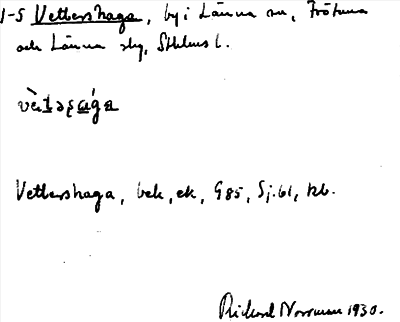 1-5 Vettershaga, by i Länna sn, Frötuna
och Länna skg, Sthlms l.
vètəṣága
Vettershaga, bek, ek, G85, Sj.61, kb.
Rickard Norrman 1930.